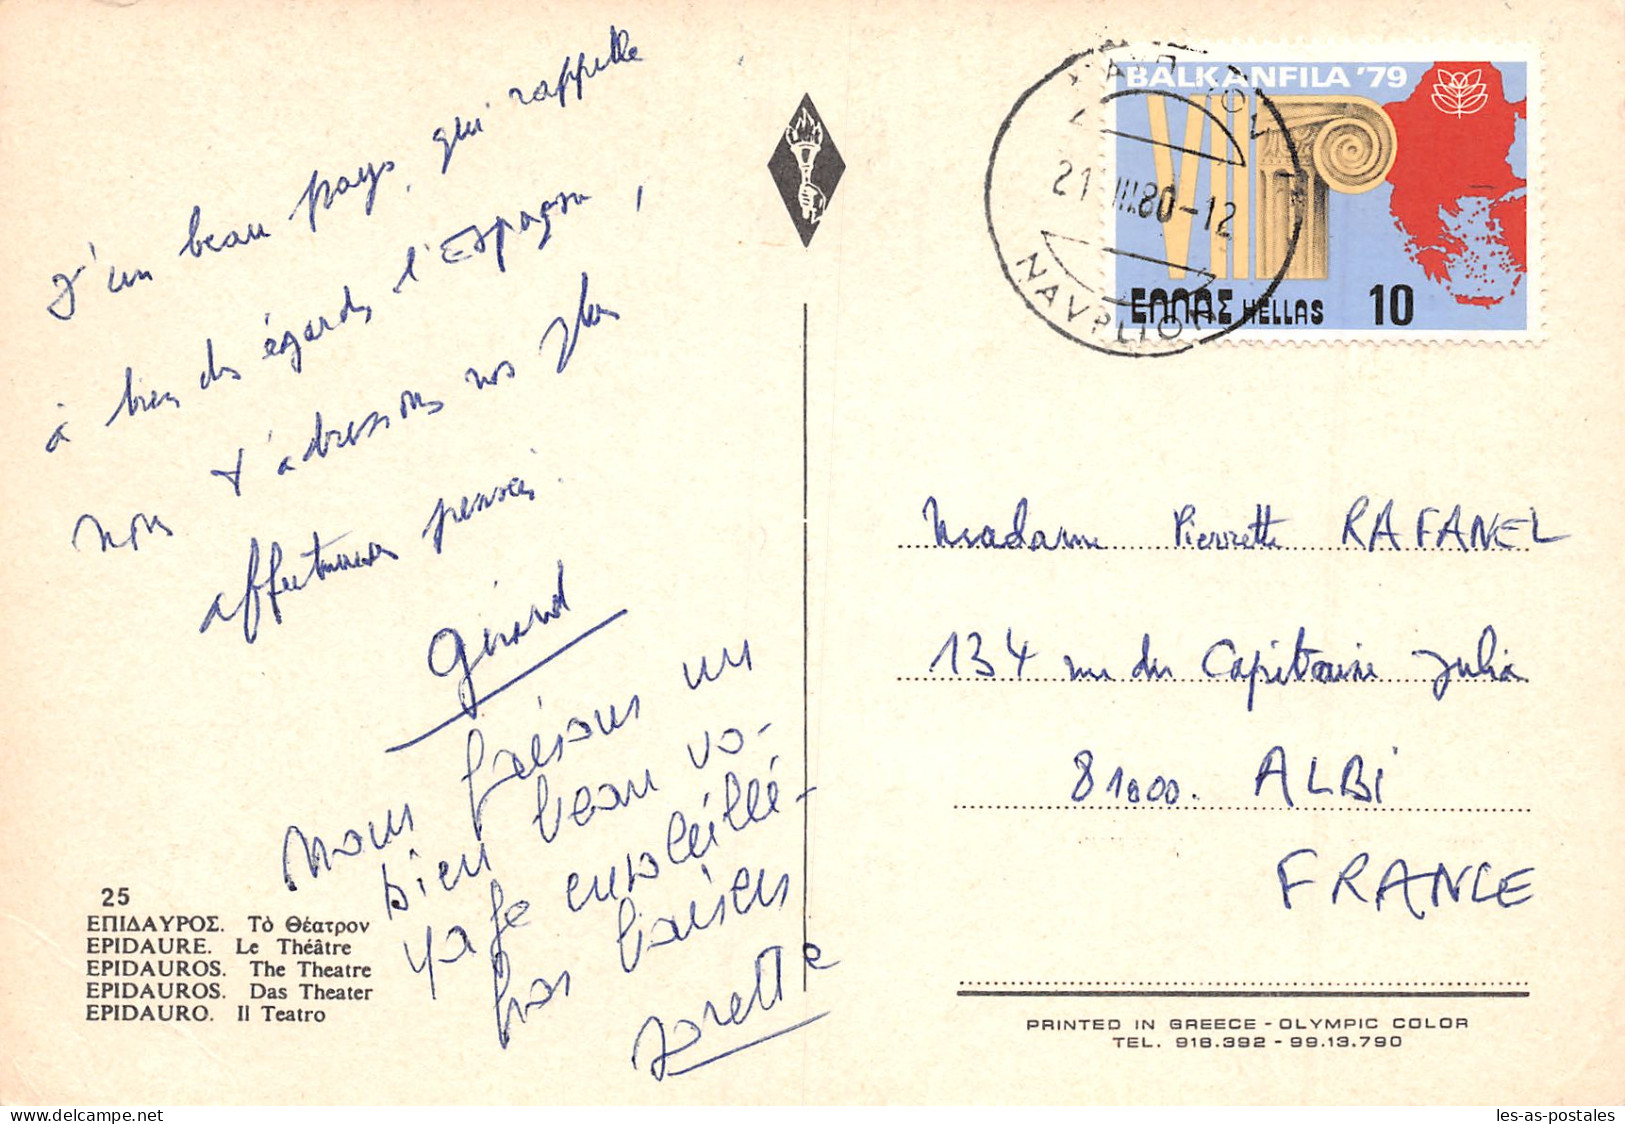 D'un beau pays, qui rappelle
à bien des égards l'Espagne,
nous t'adressons nos plus
affectueuses pensées.
Gérard
Nous faisons un
bien beau vo-
yage ensoleillé -
gros baisers
Josette
25
ΕΠΙΔΑΥΡΟΣ. Τὸ Θέατρον
EPIDAURE. Le Théâtre
EPIDAUROS. The Theatre
EPIDAUROS. Das Theater
EPIDAURO. Il Teatro
BALKANFILA '79
VIII
ΕΛΛΑΣ HELLAS 10
21 III.80-12
NAVPLION
Madame Pierrette RAFANEL
134 rue du Capitaine Julia
81000. ALBi
FRANCE
PRINTED IN GREECE - OLYMPIC COLOR
TEL. 918.392 - 99.13.790
delcampe.net
les-as-postales